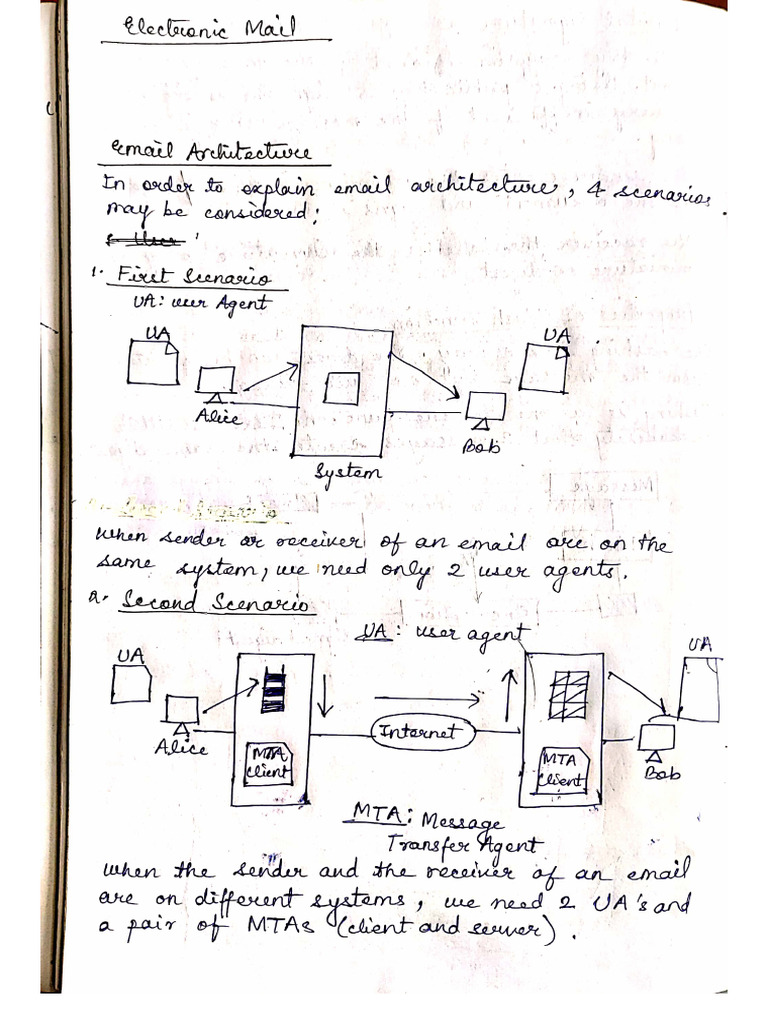 Electronic Mail
Email Architecture
In order to explain email architecture, 4 scenarios
may be considered:
1. First Scenario
UA: user Agent
UA
UA
Alice
Bob
System
When sender or receiver of an email are on the
same system, we need only 2 user agents.
2. Second Scenario
UA: user agent
UA
UA
Alice
Internet
MTA
client
MTA
client
Bob
MTA: Message
Transfer Agent
When the sender and the receiver of an email
are on different systems, we need 2 UA's and
a pair of MTAs (client and server).